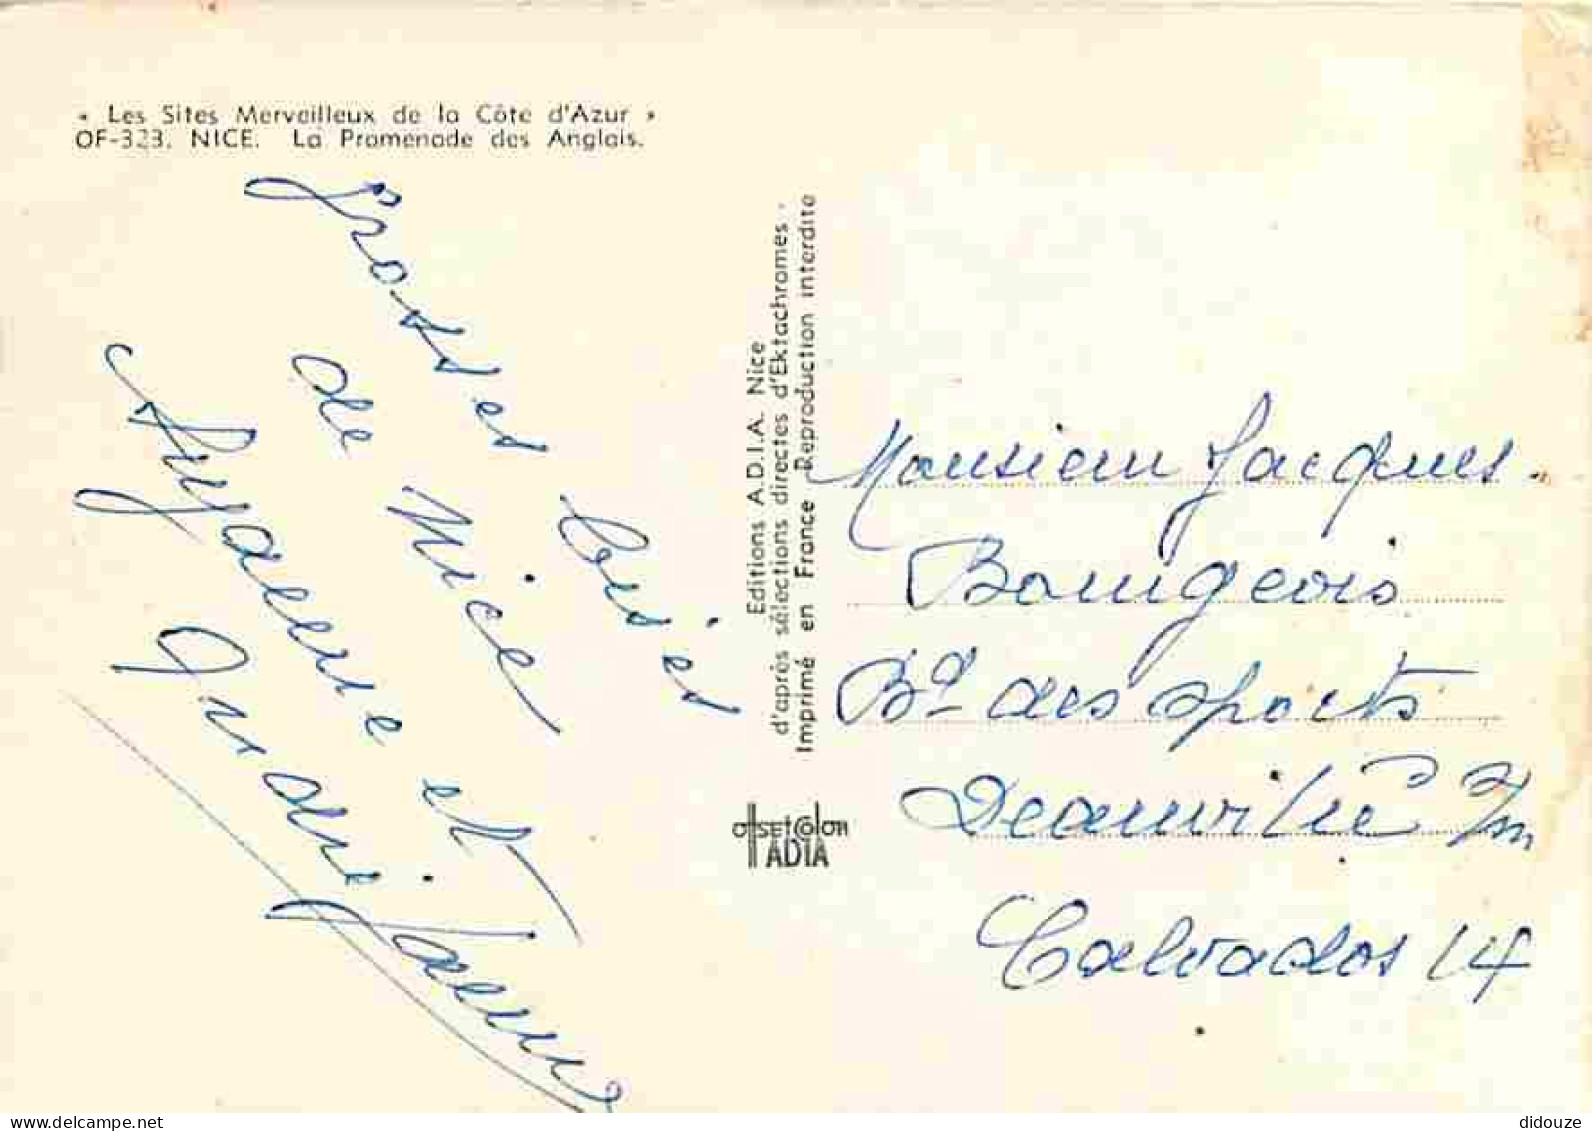 « Les Sites Merveilleux de la Côte d'Azur »
OF-323. NICE. La Promenade des Anglais.
Grosses bises
de Nice
et
Editions A.D.I.A. Nice
d'après sélections directes d'Ektachromes -
Imprimé en France Reproduction interdite
offsetcolor
ADIA
Monsieur Jacques
Bourgeois
Bd des sports
Deauville
Calvados 14
delcampe.net
didouze